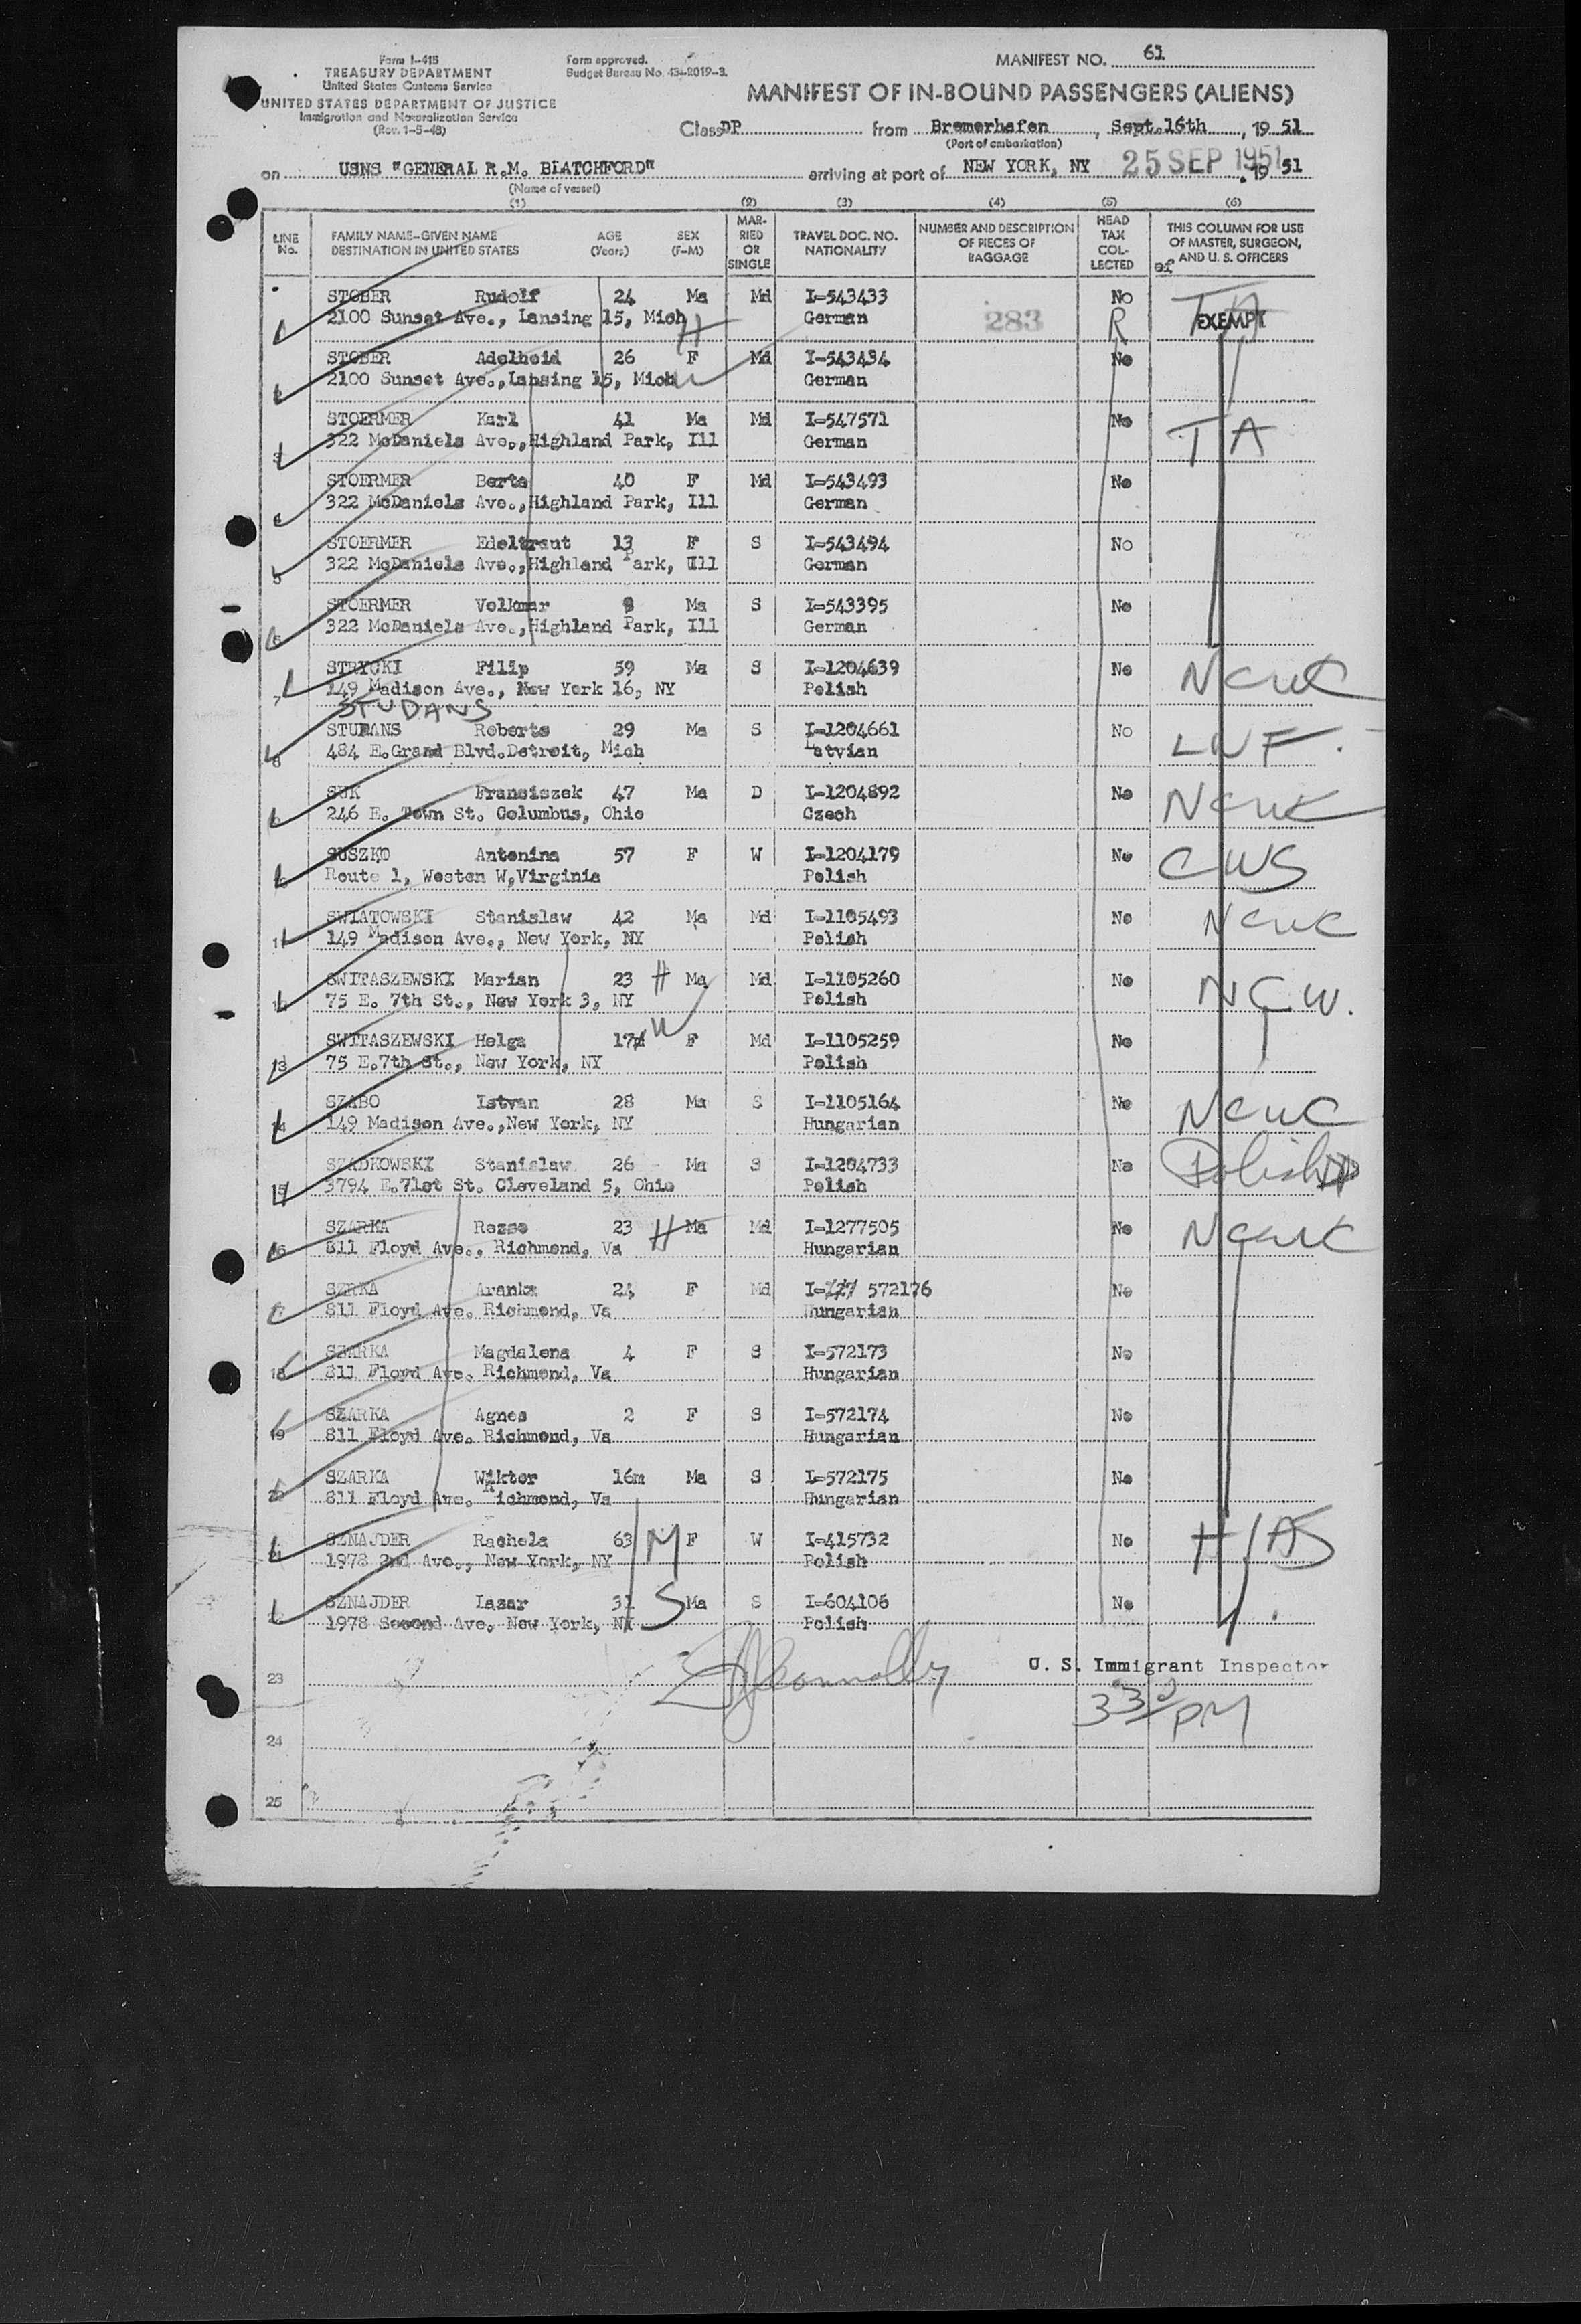 Form I-415
TREASURY DEPARTMENT
United States Customs Service
UNITED STATES DEPARTMENT OF JUSTICE
Immigration and Naturalization Service
(Rev. 1-5-48)
Form approved.
Budget Bureau No. 43-R019-3.
MANIFEST NO. 61
MANIFEST OF IN-BOUND PASSENGERS (ALIENS)
Class DP from Bremerhafen, Sept.16th, 19 51
(Port of embarkation)
on USNS "GENERAL R.M. BLATCHFORD" arriving at port of NEW YORK, NY 25 SEP 1951 , 19 51
(Name of vessel)
(1) (2) (3) (4) (5) (6)
LINE No. FAMILY NAME-GIVEN NAME DESTINATION IN UNITED STATES AGE (Years) SEX (F-M) MARRIED OR SINGLE TRAVEL DOC. NO. NATIONALITY NUMBER AND DESCRIPTION OF PIECES OF BAGGAGE HEAD TAX COLLECTED THIS COLUMN FOR USE OF MASTER, SURGEON, AND U. S. OFFICERS
STOBER Rudolf 24 Ma Md I-543433 No TA
2100 Sunset Ave., Lansing 15, Mich H German 283 R EXEMPT
STOBER Adelheid 26 F Md I-543434 No
2100 Sunset Ave.,Lansing 15, Mich W German
STOERMER Karl 41 Ma Md I-547571 No TA
322 McDaniels Ave.,Highland Park, Ill German
STOERMER Berta 40 F Md I-543493 No
322 McDaniels Ave.,Highland Park, Ill German
STOERMER Edeltraut 13 F S I-543494 No
322 McDaniels Ave.,Highland Park, Ill German
STOERMER Volkmar Ma S I-543395 No
322 McDaniels Ave.,Highland Park, Ill German
STRYCKI Filip 59 Ma S I-1204639 No NCWC
149 Madison Ave., New York 16, NY Polish
STUDANS
STURANS Roberts 29 Ma S I-1204661 No LWF.
484 E.Grand Blvd.Detroit, Mich Latvian
SUK Fransiszek 47 Ma D I-1204892 No NCWC
246 E. Town St. Columbus, Ohio Czech
SUSZKO Antonina 57 F W I-1204179 No CWS
Route 1, Weston W,Virginia Polish
SWIATOWSKI Stanislaw 42 Ma Md I-1105493 No NCWC
149 Madison Ave., New York, NY Polish
SWITASZEWSKI Marian 23 H Ma Md I-1105260 No NCW.
75 E. 7th St., New York 3, NY Polish
SWITASZEWSKI Helga 17 W F Md I-1105259 No
75 E.7th St., New York, NY Polish
SZABO Istvan 28 Ma S I-1105164 No NCWC
149 Madison Ave.,New York, NY Hungarian
SZADKOWSKI Stanislaw 26 Ma S I-1204733 No Polish
3794 E.71st St. Cleveland 5, Ohio Polish
SZARKA Rezso 23 H Ma Md I-1277505 No NCWC
811 Floyd Ave., Richmond, Va Hungarian
SZRKA Aranka 24 F Md I-127 572176 No
811 Floyd Ave. Richmond, Va Hungarian
SZARKA Magdalena 4 F S I-572173 No
811 Floyd Ave. Richmond, Va Hungarian
SZARKA Agnes 2 F S I-572174 No
811 Floyd Ave. Richmond, Va Hungarian
SZARKA Wiktor 16m Ma S I-572175 No
811 Floyd Ave. Richmond, Va Hungarian
SZNAJDER Rachela 63 M F W I-415732 No HIAS
1978 2nd Ave., New York, NY Polish
SZNAJDER Lazar 31 S Ma S I-604106 No
1978 Second Ave. New York, NY Polish
Connolly U. S. Immigrant Inspector
23
330 PM
24
25